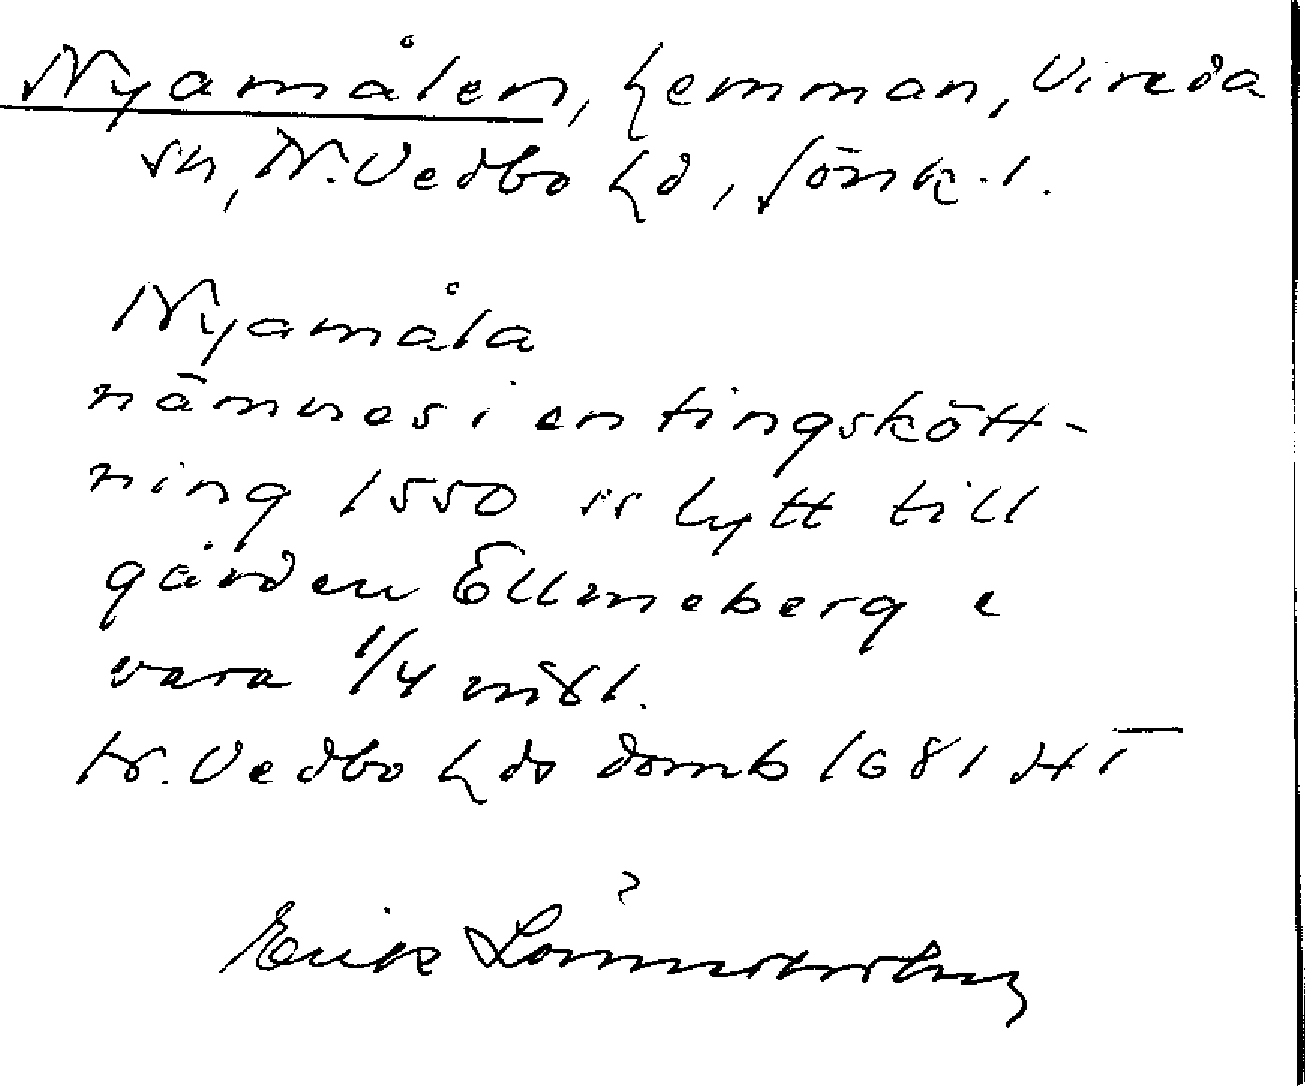 Nyamålen, hemman, Vireda
sn, N. Vedbo hd, Jönk. l.
Nyamåla
nämnes i en tingskött-
ning 1550 ss lytt till
gården Ellmeberg
vara 1/4 mtl.
N. Vedbo hds domb 1681 HT
?
Erik